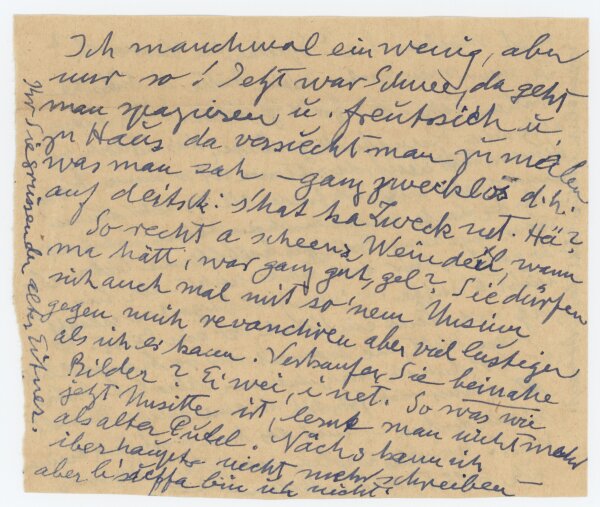 Ich manchmal ein wenig, aber
nur so! Jetzt war Schnee, da geht
man spazieren u. freut sich u.
zu Haus da versucht man zu malen
was man sah – ganz zwecklos d. h.
auf deitsch: s'hat ka Zweck net. Hä?
So recht a scheens Weindeil, wann
ma hätt, war ganz gut, gel? Sie dürfen
sich auch mal mit so'nem Unsinn
gegen mich revanchiren aber viel lustiger
als ich es kann. Verkaufen Sie beinahe
Bilder? Ei wei, i net. So was wie
jetzt Unsitte ist, lernt man nicht mehr
als alter Esel. Nächs kann ich
überhaupt nicht mehr schreiben –
aber b'soffa bin ich nicht.
Ihr Sie grüssender alter Eitner.